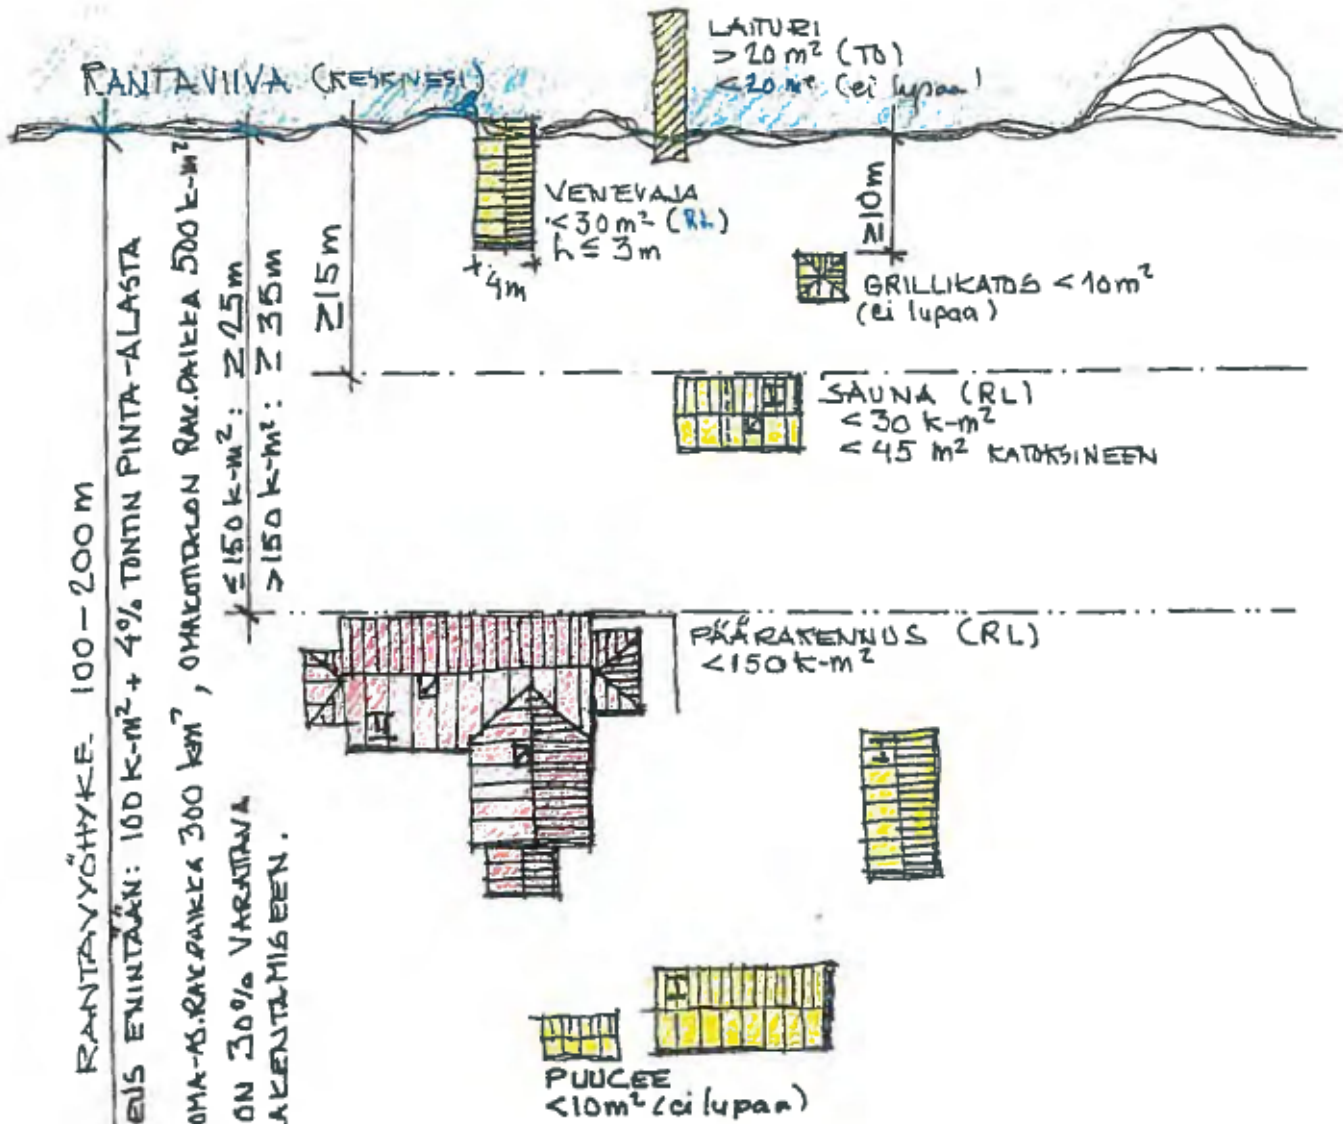 RANTAVIIVA (KESKIVESI)
LAITURI
> 20 m² (TO)
< 20 m² (ei lupaa)
VENEVAJA
< 30 m² (RL)
h ≤ 3m
4m
≥10m
GRILLIKATOS < 10m²
(ei lupaa)
≥15m
SAUNA (RL)
< 30 k-m²
< 45 m² KATOKSINEEN
PÄÄRAKENNUS (RL)
<150 k-m²
PUUCEE
<10m² (ei lupaa)
RANTAVYÖHYKE 100-200m
EUS ENINTÄÄN: 100 K-m² + 4% TONTIN PINTA-ALASTA
OMA-AS.RAK.PAIKKA 300 km², OMAKOTITALON RAK.PAIKKA 500 k-m²
≤150 k-m²: ≥ 25m
>150 k-m²: ≥ 35m
ON 30% VARATTAVA
AKENTAMISEEN.